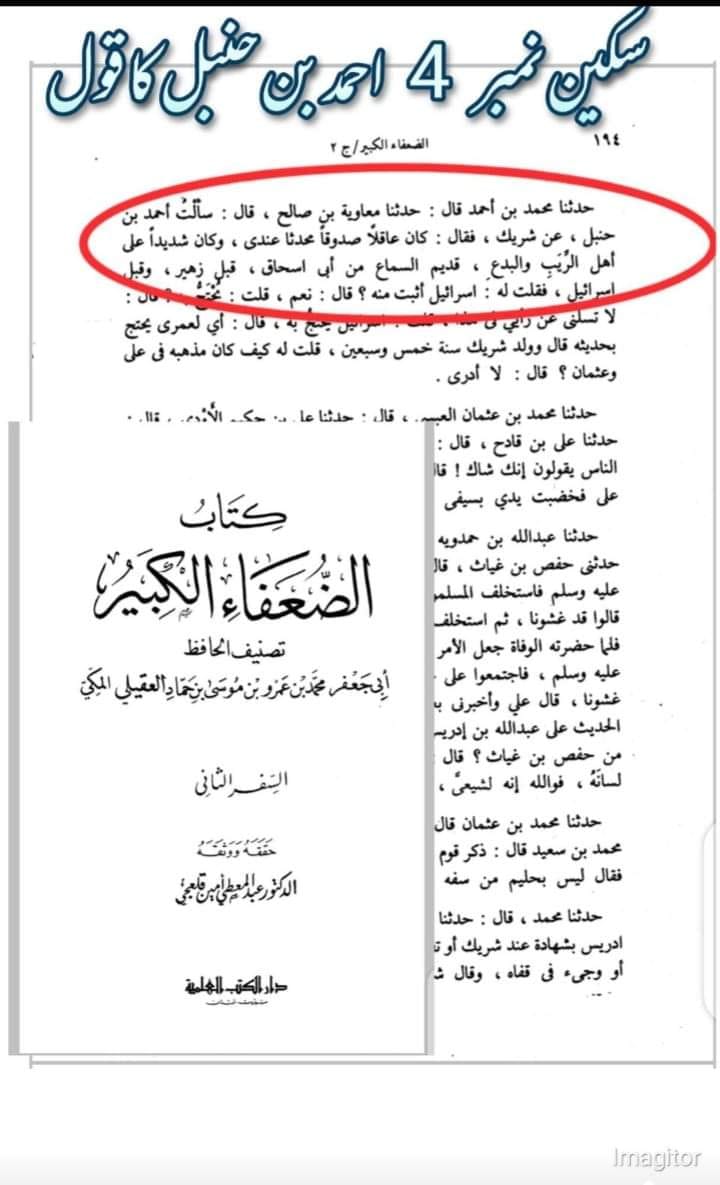 سکین نمبر 4 احمد بن حنبل کا قول
١٩٤
الضعفاء الكبير/ج ٢
حدثنا محمد بن أحمد قال : حدثنا معاوية بن صالح ، قال : سألتُ أحمد بن
حنبل ، عن شريك ، فقال : كان عاقلاً صدوقاً محدثا عندى ، وكان شديداً على
أهل الرِّيَبِ والبدع ، قديم السماع من أبى اسحاق ، قبل زهير ، وقبل
اسرائيل ، فقلت له : اسرائيل أثبت منه ؟ قال : نعم ، قلت : يُحْتَجُّ به ؟ قال :
لا تسلنى عن رأيي فى هذا ، قلت : اسرائيل يحتجُّ به ، قال : أي لعمرى يحتج
بحديثه قال وولد شريك سنة خمس وسبعين ، قلت له كيف كان مذهبه فى على
وعثمان ؟ قال : لا أدرى .
حدثنا محمد بن عثمان العبسى ، قال : حدثنا على بن حكيم الأَوْدى ، قال :
حدثنا على بن قادح ، قال :
الناس يقولون إنك شاك ! قا
على فخضبت يدي بسيفى
حدثنا عبدالله بن حمدويه
حدثنى حفص بن غياث ، قال
عليه وسلم فاستخلف المسلمو
قالوا قد غشونا ، ثم استخلف
فلما حضرته الوفاة جعل الأمر
عليه وسلم ، فاجتمعوا على
غشونا ، قال علي وأخبرنى ب
الحديث على عبدالله بن إدريس
من حفص بن غياث ؟ قال
لسانَهُ ، فوالله إنه لشيعىَّ ،
حدثنا محمد بن عثمان قال
محمد بن سعيد قال : ذكر قوم
فقال ليس بحليم من سفه
حدثنا محمد ، قال : حدثنا
ادريس بشهادة عند شريك أو
أو وجىء فى قفاه ، وقال
كِتَابُ
الضُّعَفَاءِ الْكَبِيرُ
تصنيف الحافظ
أبى جعفر محمد بن عمرو بن موسى بن حماد العقيلي المكي
السفر الثانى
حَقَّقَهُ وَوَثَّقَهُ
الدكتور عبد المعطي أمين قلعجي
دار الكتب العلمية
بيروت - لبنان
Imagitor